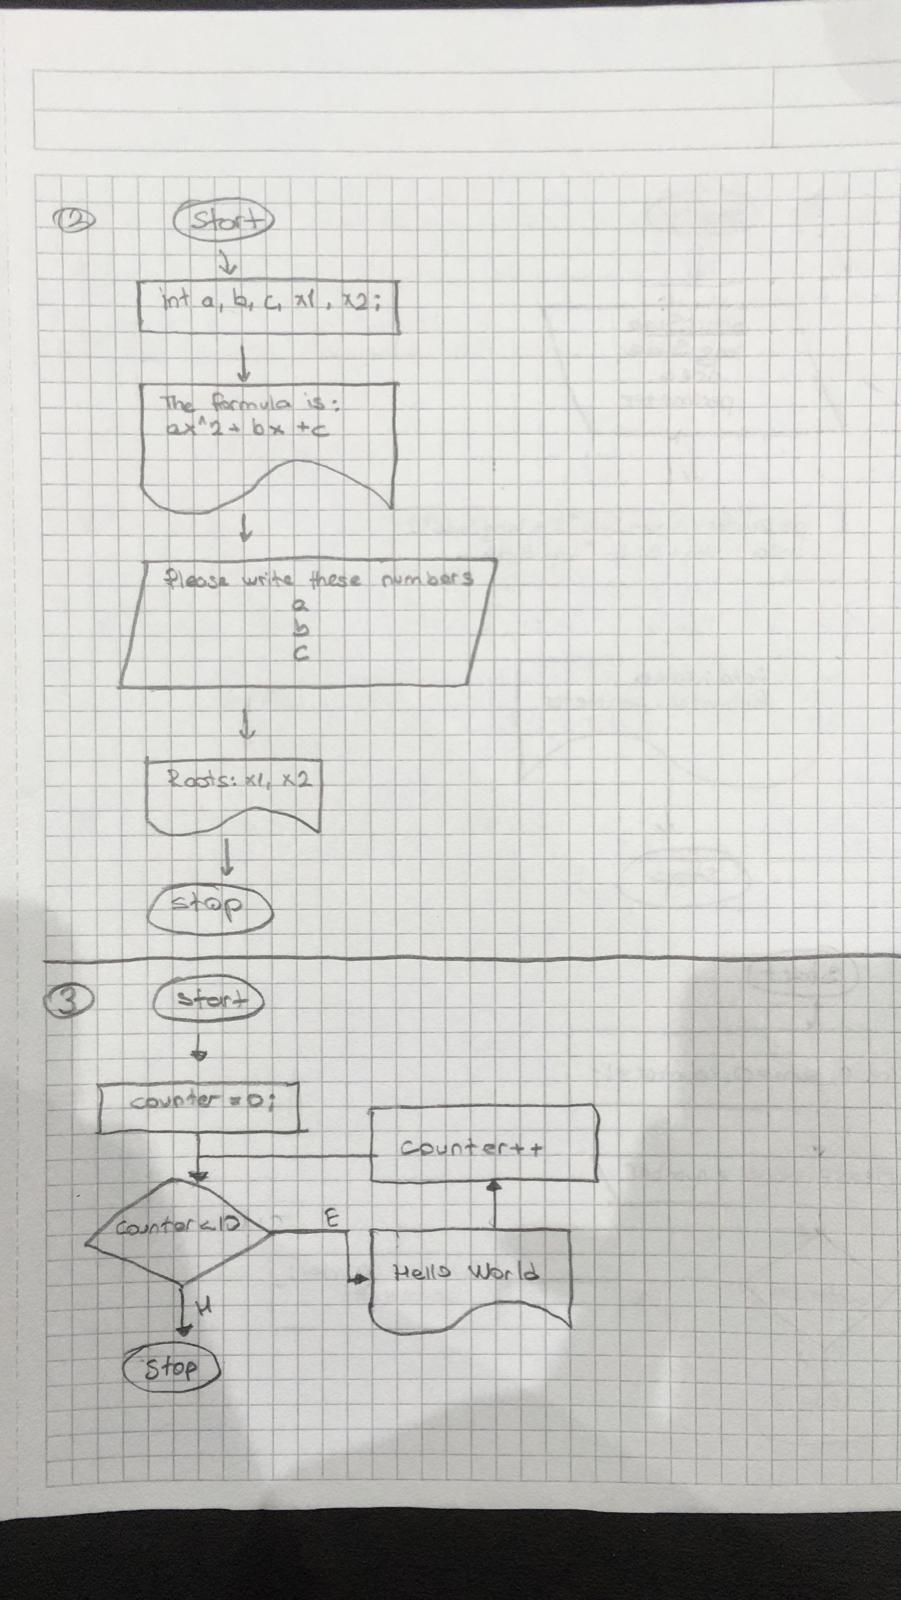 2
Start
int a, b, c, x1, x2;
The formula is:
ax^2 + bx + c
Please write these numbers
a
b
c
Roots: x1, x2
stop
3
start
counter = 0;
counter++
counter < 10
E
Hello World
H
Stop